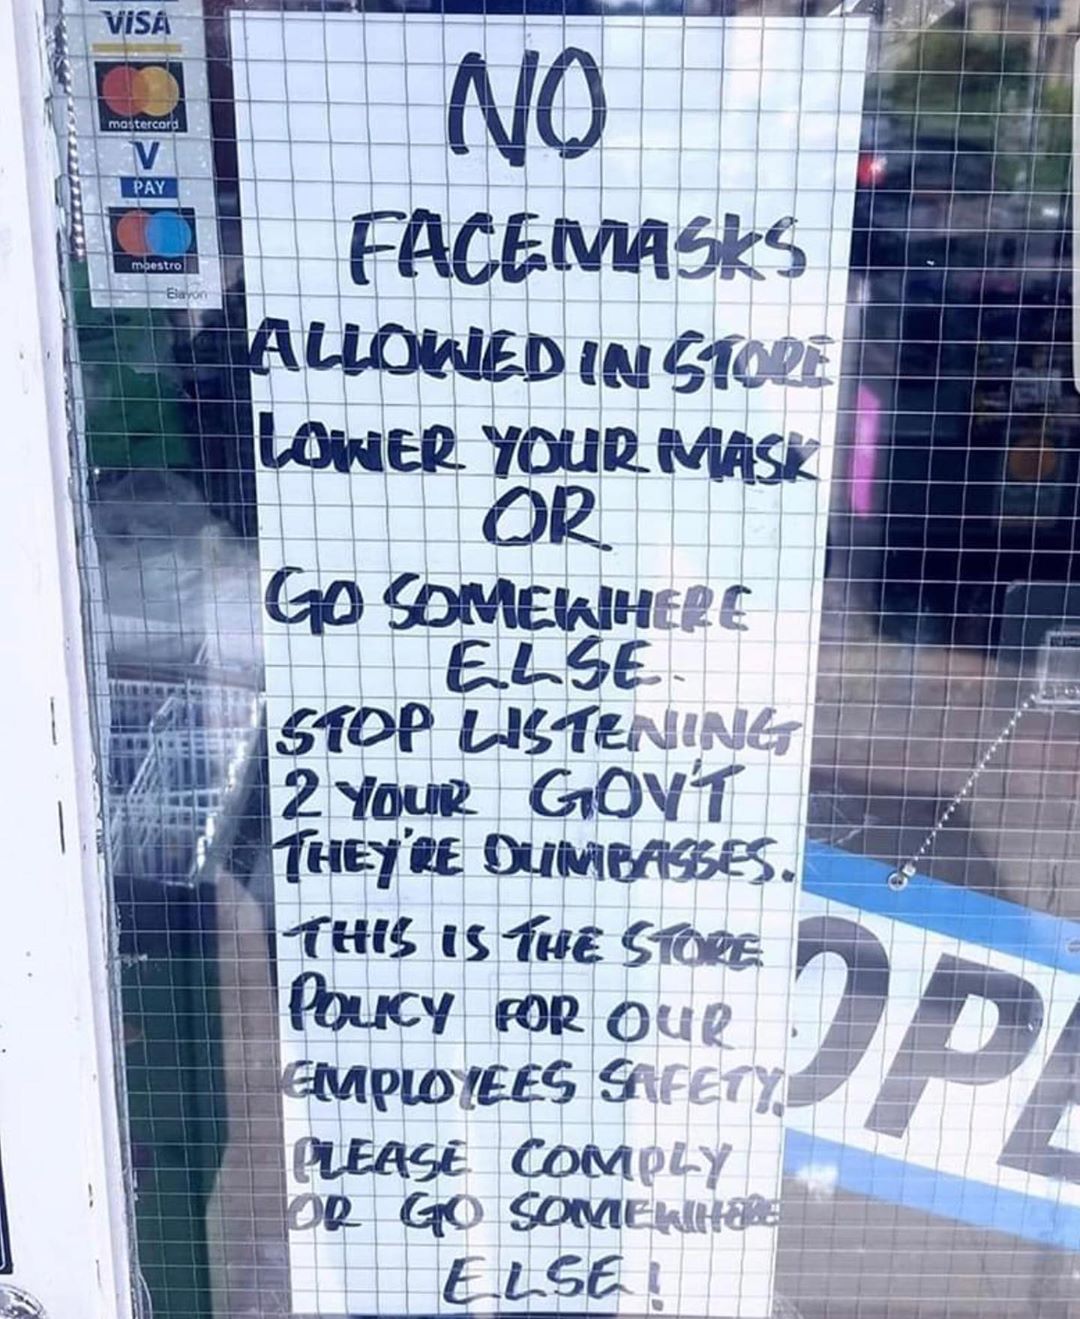 VISA
mastercard
V
PAY
maestro
Elavon
NO
FACEMASKS
ALLOWED IN STORE
LOWER YOUR MASK
OR
GO SOMEWHERE
ELSE.
STOP LISTENING
2 YOUR GOV'T
THEY'RE DUMBASSES.
THIS IS THE STORE
POLICY FOR OUR
EMPLOYEES SAFETY.
PLEASE COMPLY
OR GO SOMEWHERE
ELSE!
OPE